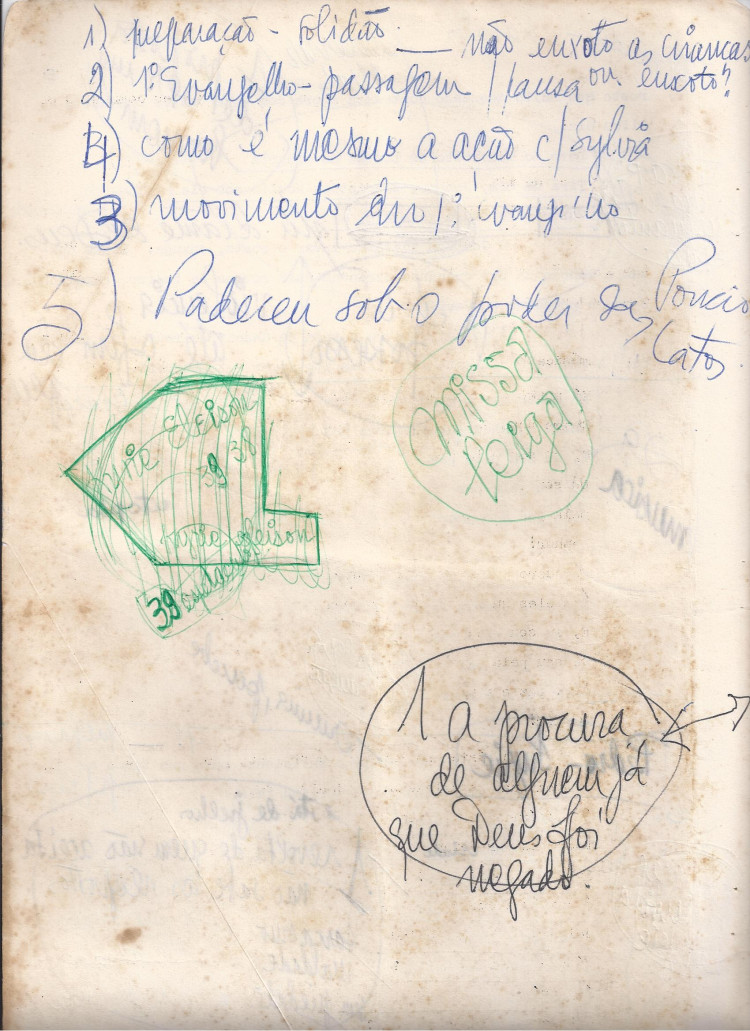 1) preparação - solidão — não enxoto as crianças
2) 1º Evangelho - passagem / pausa ou enxoto?
4) como é mesmo a ação c/ Sylvia
3) movimento 1º
5) Padeceu sob o poder Poncio
Latos
missa
leiga
Kyrie Eleison
39 38
Kyrie eleison
39
1 a procura
de alguem já
que Deus foi
negado.